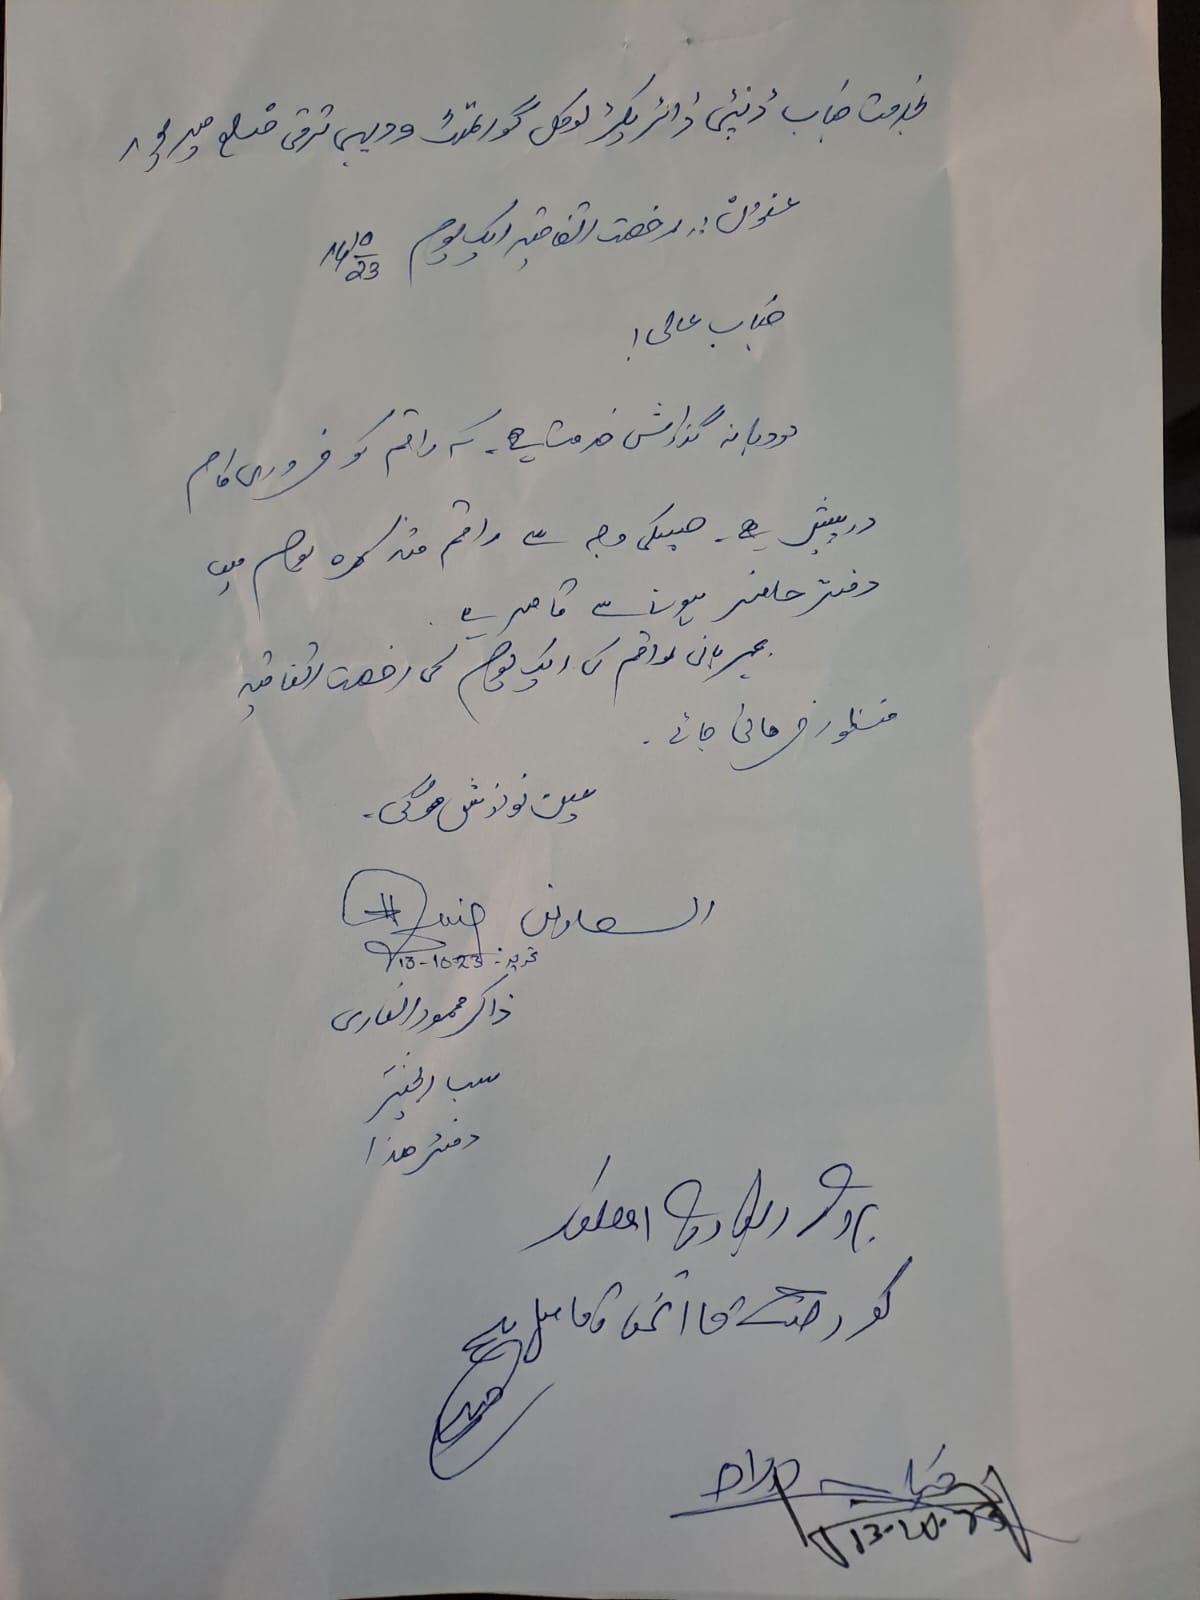 بخدمت جناب ڈپٹی ڈائریکٹر لوکل گورنمنٹ و دیہی ترقی ضلع میرپور
عنوان:۔ رخصت اتفاقیہ ایک یوم 14/10/23
جناب عالی!
مودبانہ گذارش خدمت ہے۔ کہ راقم کو ضروری کام
درپیش ہے۔ جسکی وجہ سے راقم متذکرہ یوم میں
دفتر حاضر ہونے سے قاصر ہے۔
بمہربانی راقم کی ایک یوم کی رخصت اتفاقیہ
منظور فرمائی جائے۔
عین نوازش ہوگی۔
العارض
تحریر: 13-10-23
ذاکر محمود انصاری
سب انجینئر
دفتر ھذا
کو رخصت اتفاقیہ قابل ہے
جناب
13-10-23